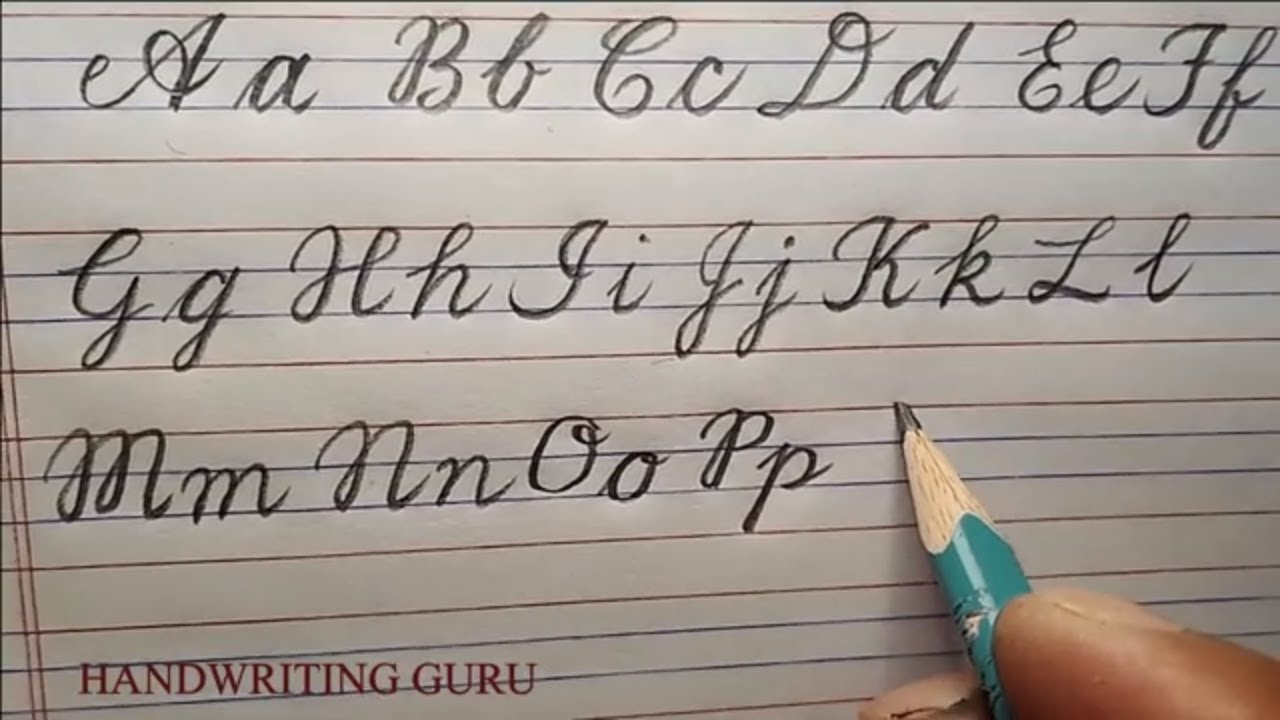 Aa Bb Cc Dd Ee Ff
Gg Hh Ii Jj Kk Ll
Mm Nn Oo Pp
HANDWRITING GURU